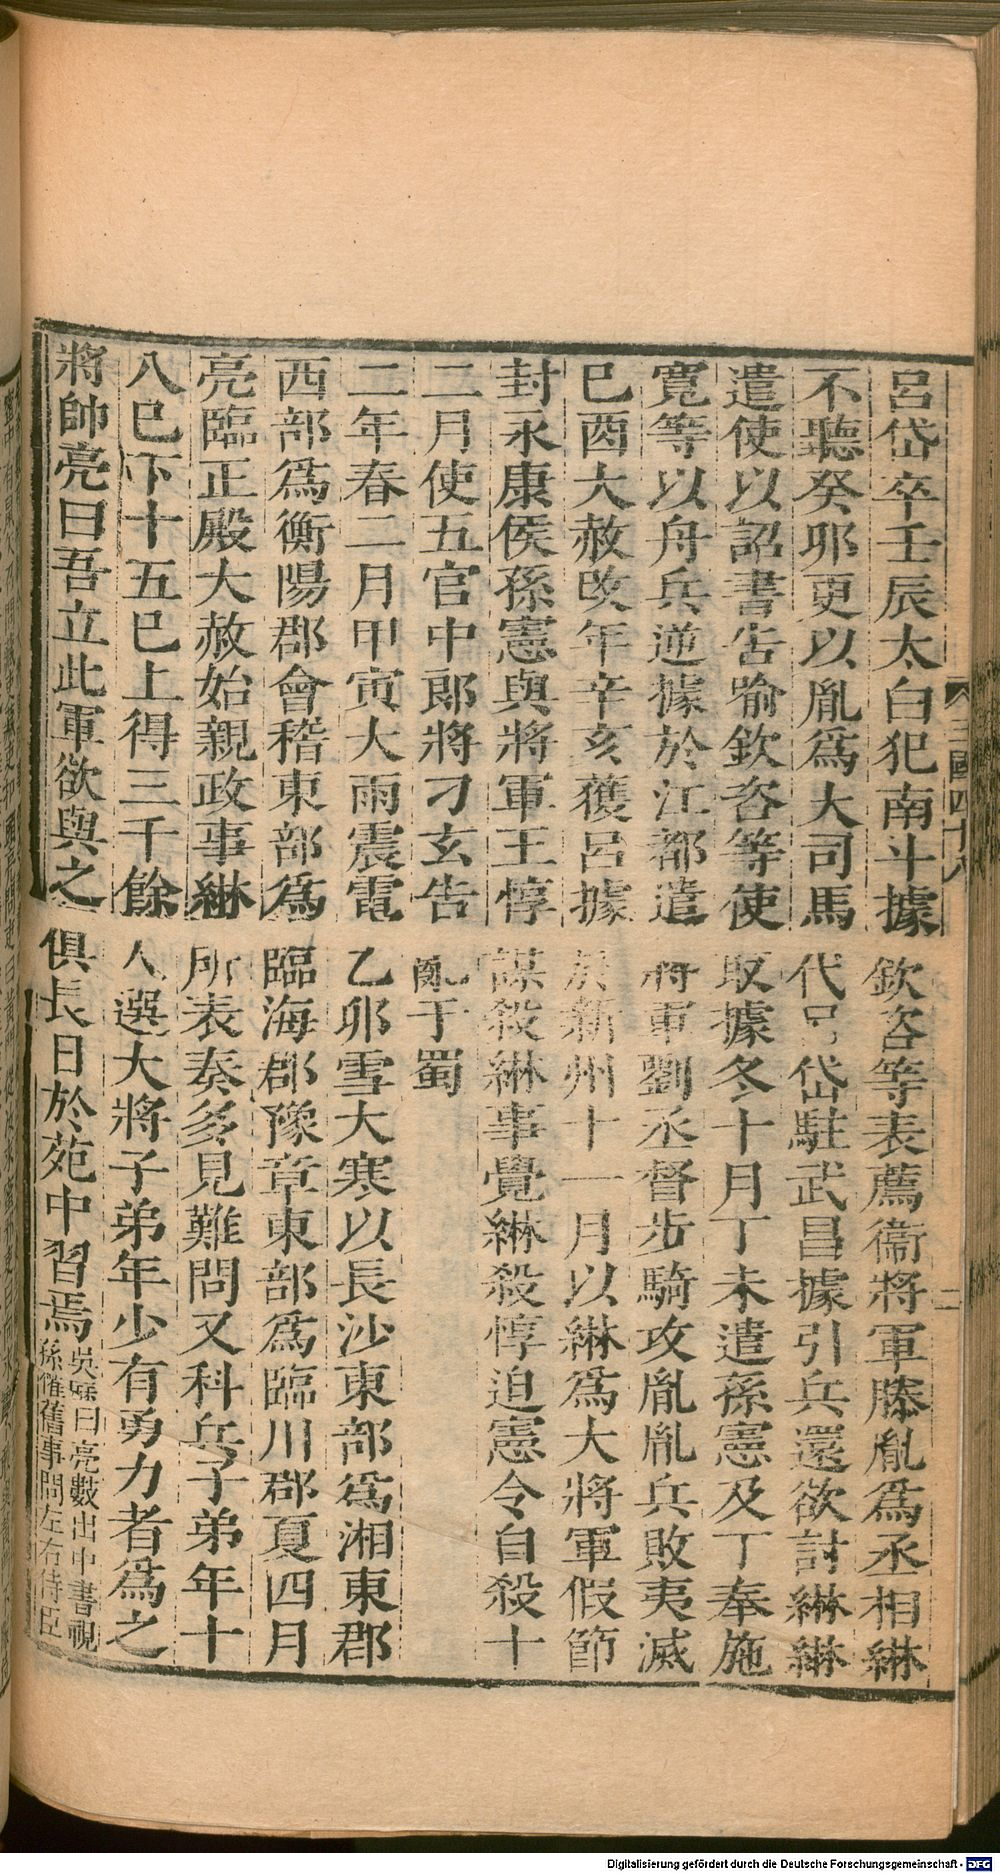 呂岱卒壬辰太白犯南斗據欽咨等表薦衞將軍滕胤爲丞相綝
不聽癸卯更以胤爲大司馬代呂岱駐武昌據引兵還欲討綝綝
遣使以詔書告喻欽咨等使取據冬十月丁未遣孫憲及丁奉施
寬等以舟兵逆據於江都遣將軍劉丞督步騎攻胤胤兵敗夷滅
巳酉大赦改年辛亥獲呂據於新州十一月以綝爲大將軍假節
封永康侯孫憲與將軍王惇謀殺綝事覺綝殺惇迫憲令自殺十
二月使五官中郎將刁玄告亂于蜀
二年春二月甲寅大雨震電乙卯雪大寒以長沙東部爲湘東郡
西部爲衡陽郡會稽東部爲臨海郡豫章東部爲臨川郡夏四月
亮臨正殿大赦始親政事綝所表奏多見難問又科兵子弟年十
八巳下十五巳上得三千餘人選大將子弟年少有勇力者爲之
將帥亮曰吾立此軍欲與之俱長日於苑中習焉吳歷曰亮數出中書視
孫權舊事問左右侍臣
三國四十八
二
Digitalisierung gefördert durch die Deutsche Forschungsgemeinschaft - DFG